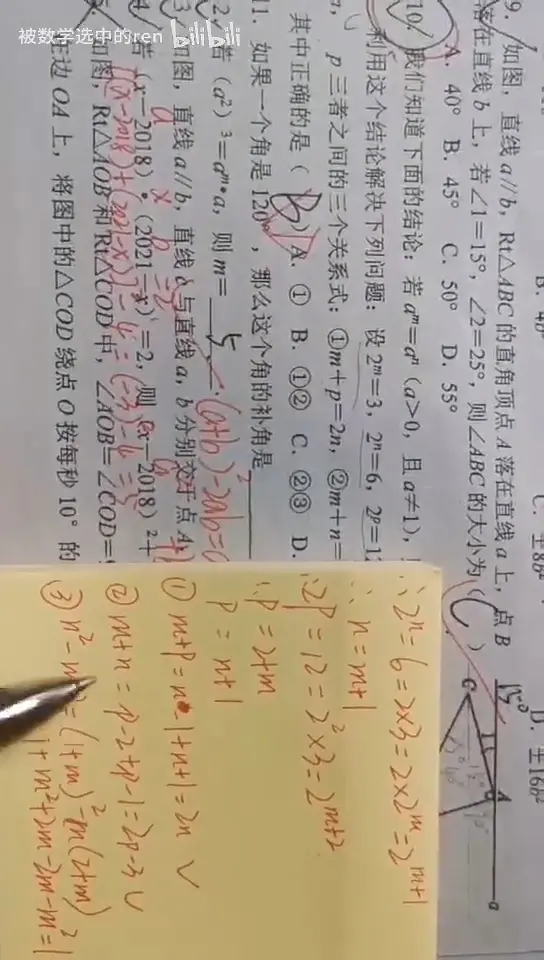 被数学选中的ren bilibili
9. 如图，直线 a//b，Rt△ABC 的直角顶点 A 落在直线 a 上，点 B
落在直线 b 上，若∠1=15°，∠2=25°，则∠ABC 的大小为（C）
A. 40° B. 45° C. 50° D. 55°
10. 我们知道下面的结论：若 aᵐ=aⁿ（a>0，且 a≠1），
利用这个结论解决下列问题：设 2ᵐ=3，2ⁿ=6，2ᵖ=12
p 三者之间的三个关系式：①m+p=2n，②m+n=
其中正确的是（B）A. ① B. ①② C. ②③ D.
11. 如果一个角是 120°，那么这个角的补角是
若（a²）³=aᵐ•a，则 m= 5
如图，直线 a//b，直线 与直线 a，b 分别交于点 A，
若（x—2018）•（2021—x）=2，则（x—2018）²+
如图，Rt△AOB 和 Rt△COD 中，∠AOB=∠COD=
边 OA 上，将图中的△COD 绕点 O 按每秒 10° 的
(a+b)²-2ab=
∵2ⁿ=6=2×3=2×2ᵐ=2ᵐ⁺¹
∴n=m+1
∵2ᵖ=12=2²×3=2ᵐ⁺²
∴p=2+m
p=n+1
① m+p=n-1+n+1=2n ✓
② m+n=p-2+p-1=2p-3 ✓
③ n²-m =(1+m)²-m(2+m)
1+m²+2m-2m-m²=1
C
A
a
15°
D. ±16b²
C. ±8b²